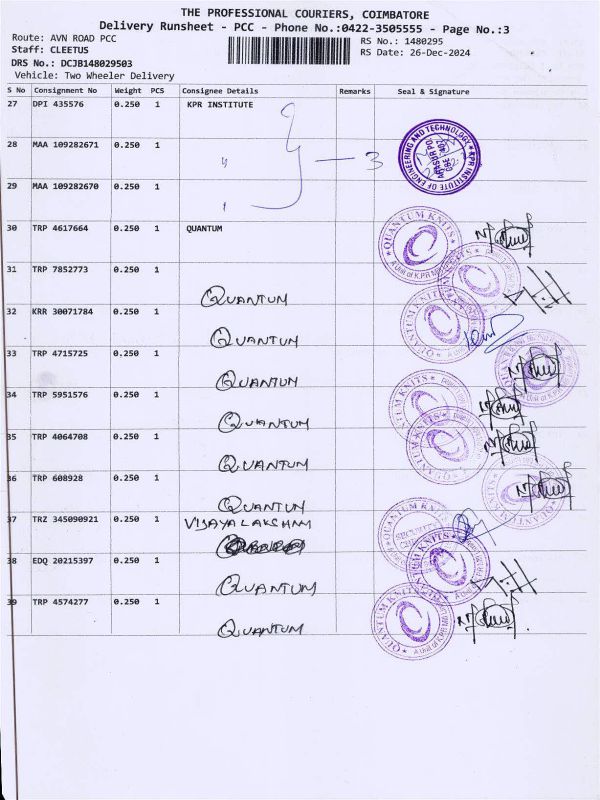 THE PROFESSIONAL COURIERS, COIMBATORE
Delivery Runsheet - PCC - Phone No.:0422-3505555 - Page No.:3
Route: AVN ROAD PCC RS No.: 1480295
Staff: CLEETUS RS Date: 26-Dec-2024
DRS No.: DCJB148029503
Vehicle: Two Wheeler Delivery
S No Consignment No Weight PCS Consignee Details Remarks Seal & Signature
27 DPI 435576 0.250 1 KPR INSTITUTE
28 MAA 109282671 0.250 1 " 3
29 MAA 109282670 0.250 1
KPR INSTITUTE OF ENGINEERING AND TECHNOLOGY
30 TRP 4617664 0.250 1 QUANTUM
QUANTUM KNITS
31 TRP 7852773 0.250 1
QUANTUM
32 KRR 30071784 0.250 1
QUANTUM
33 TRP 4715725 0.250 1
QUANTUM
34 TRP 5951576 0.250 1
QUANTUM
35 TRP 4064708 0.250 1
QUANTUM
36 TRP 608928 0.250 1
QUANTUM
37 TRZ 345090921 0.250 1 VIJAYALAKSHMI
38 EDQ 20215397 0.250 1
QUANTUM
39 TRP 4574277 0.250 1
QUANTUM